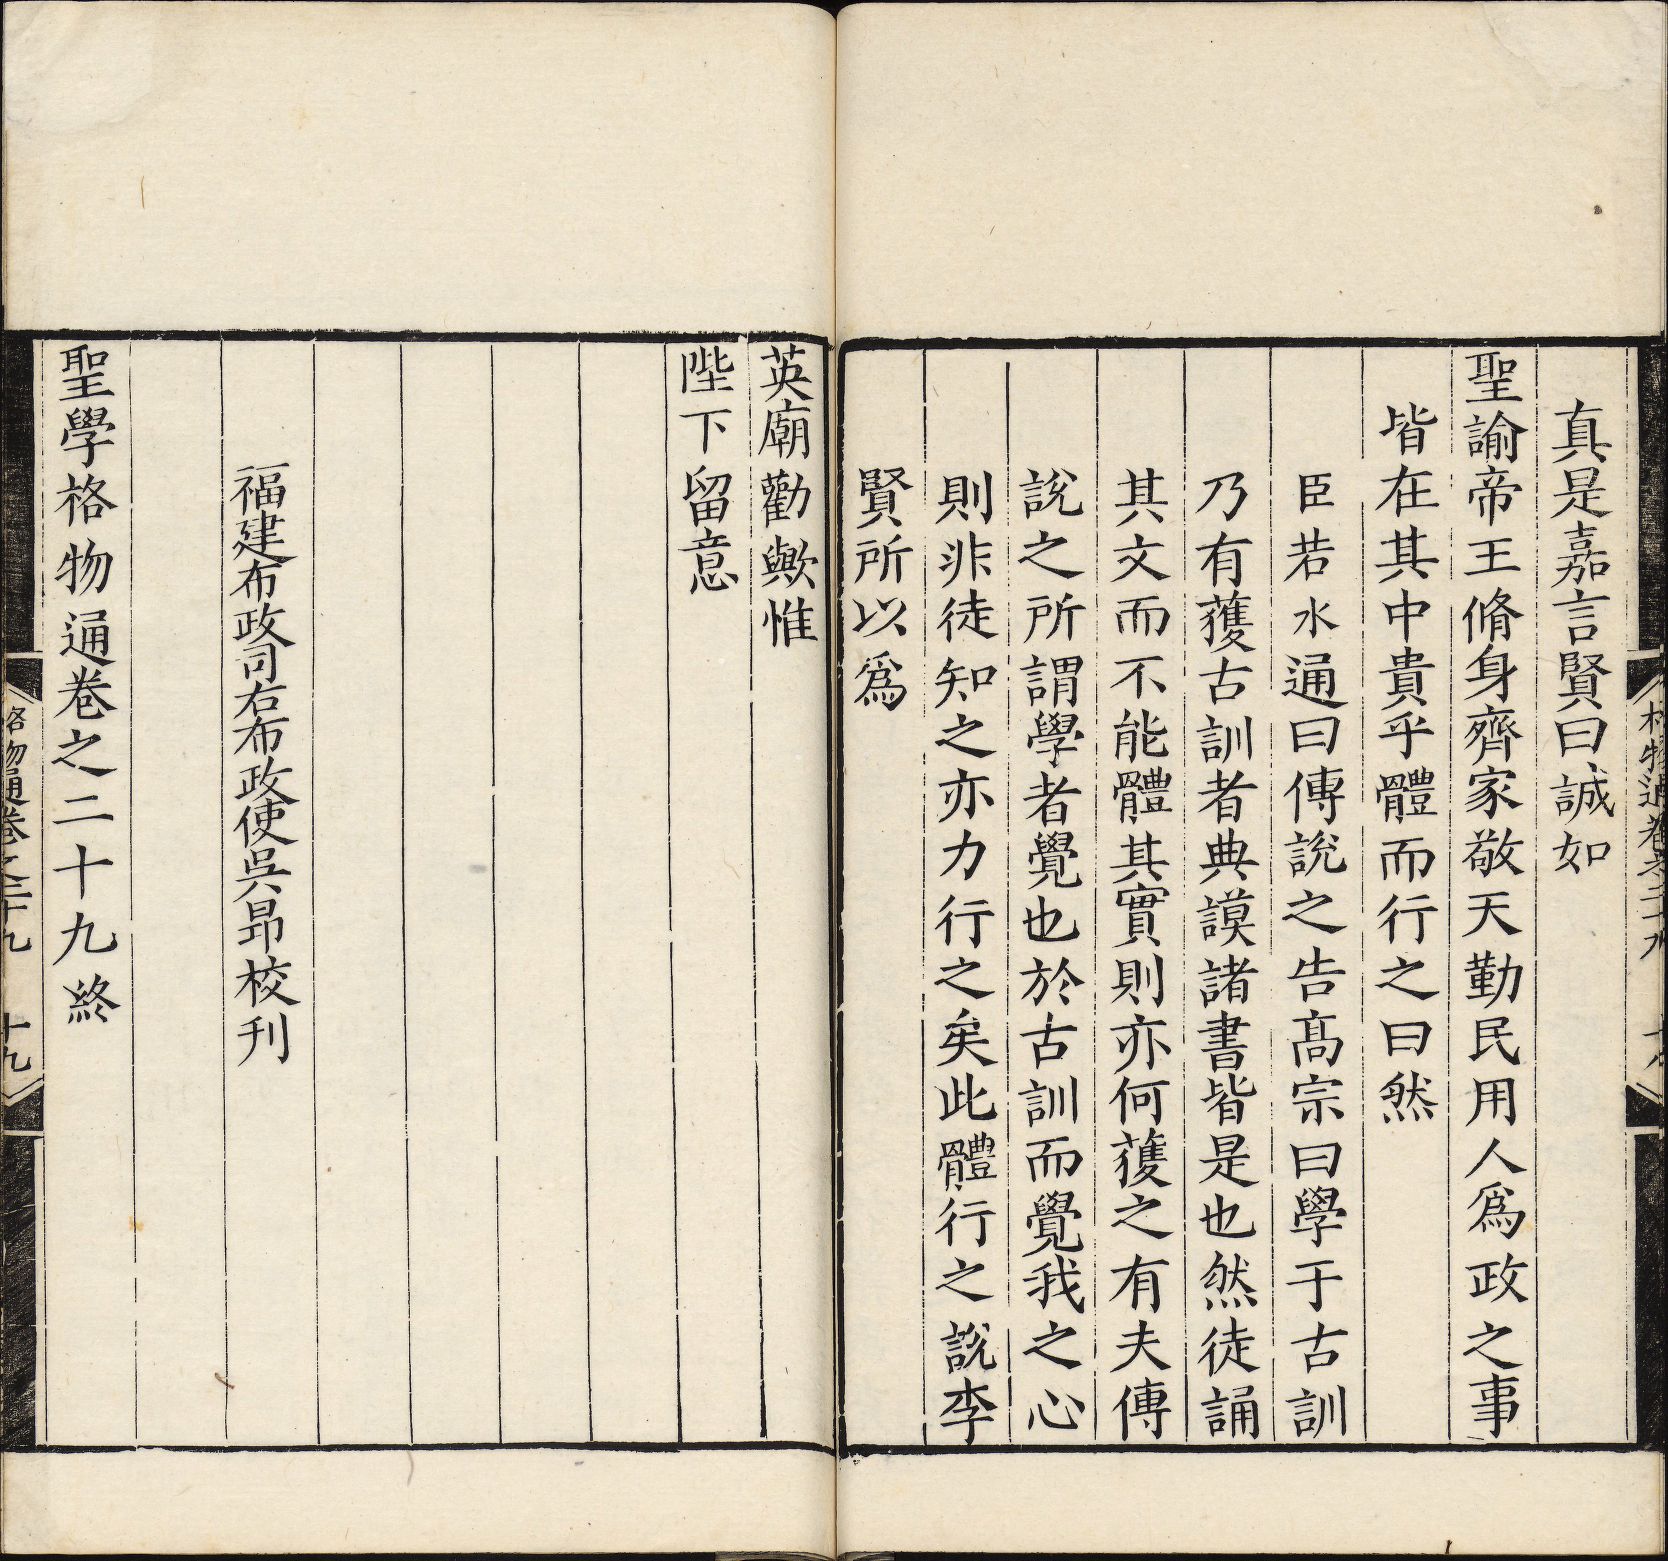 真是嘉言賢曰誠如
聖諭帝王脩身齊家敬天勤民用人爲政之事
皆在其中貴乎體而行之曰然
臣若水通曰傳說之告髙宗曰學于古訓
乃有獲古訓者典謨諸書皆是也然徒誦
其文而不能體其實則亦何獲之有夫傳
說之所謂學者覺也於古訓而覺我之心
則非徒知之亦力行之矣此體行之說李
賢所以爲
英廟勸歟惟
陛下留意
福建布政司右布政使吳昻校刊
聖學格物通卷之二十九終
格物通卷之二十九 十九